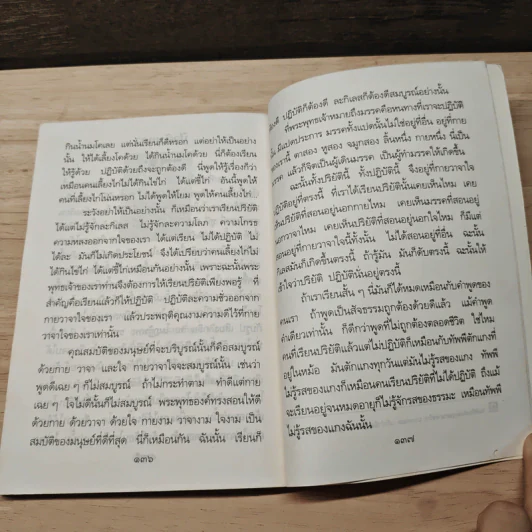 กินน้ำนมโคเลย แต่นั่นเรียนก็ดีหรอก แต่อย่าให้เป็นอย่าง
นั้น ให้ได้เลี้ยงโคด้วย ได้กินน้ำนมโคด้วย นี่ก็ต้องเรียน
ให้รู้ด้วย ปฏิบัติด้วยถึงจะถูกต้องดี นี่พูดให้รู้เรื่องก็ว่า
เหมือนคนเลี้ยงไก่ไม่ได้กินไข่ไก่ ได้แต่ขี้ไก่ อันนี้พูดให้
คนที่เลี้ยงไก่โน่นหรอก ไม่ได้พูดให้โยม พูดให้คนเลี้ยงไก่
ระวังอย่าให้เป็นอย่างนั้น ก็เหมือนว่าเราเรียนปริยัติ
ได้แต่ไม่รู้จักละกิเลส ไม่รู้จักละความโลภ ความโกรธ
ความหลงออกจากใจของเรา ได้แต่เรียน ไม่ได้ปฏิบัติ ไม่
ได้ละ มันก็ไม่เกิดประโยชน์ จึงได้เปรียบว่าคนเลี้ยงไก่ไม่
ได้กินไข่ไก่ ได้แต่ขี้ไก่เหมือนกันอย่างนั้น เพราะฉะนั้นพระ
พุทธเจ้าของเราท่านจึงต้องการให้เรียนปริยัติเพียงพอรู้ ที่
สำคัญคือเรียนแล้วก็ให้ปฏิบัติ ปฏิบัติละความชั่วออกจาก
กายวาจาใจของเรา แล้วประพฤติคุณงามความดีไว้ที่กาย
วาจาใจของเราเท่านั้น
คุณสมบัติของมนุษย์ที่จะบริบูรณ์นั้นก็คือสมบูรณ์
ด้วยกาย วาจา และใจ กายวาจาใจจะสมบูรณ์นั้น เช่นว่า
พูดดีเฉย ๆ ก็ไม่สมบูรณ์ ถ้าไม่กระทำตาม ทำดีแต่กาย
เฉย ๆ ใจไม่ดีนั้นก็ไม่สมบูรณ์ พระพุทธองค์ทรงสอนให้ดี
ด้วยกาย ด้วยวาจา ด้วยใจ กายงาม วาจางาม ใจงาม เป็น
สมบัติของมนุษย์ที่ดีที่สุด นี่ก็เหมือนกัน ฉันนั้น เรียนก็
๑๓๖
ต้องดี ปฏิบัติก็ต้องดี ละกิเลสก็ต้องดีสมบูรณ์อย่างนั้น
ที่พระพุทธเจ้าหมายถึงมรรคคือหนทางที่เราจะปฏิบัติ
นั้น มีแปดประการ มรรคทั้งแปดนั้นไม่ใช่อยู่ที่อื่น อยู่ที่กาย
ของเรานี้ ตาสอง หูสอง จมูกสอง ลิ้นหนึ่ง กายหนึ่ง นี่เป็น
มรรค แล้วก็จิตเป็นผู้เดินมรรค เป็นผู้ทำมรรคให้เกิดขึ้น
ฉะนั้นทั้งปริยัตินี้ ทั้งปฏิบัตินี้ จึงอยู่ที่กายวาจาใจ
ปฏิบัติอยู่ที่ตรงนี้ ที่เราได้เรียนปริยัตินั้นเคยเห็นไหม เคย
เห็นปริยัติที่สอนอยู่นอกกายไหม เคยเห็นปริยัติที่สอนอยู่
นอกวาจาไหม เคยเห็นปริยัติที่สอนอยู่นอกใจไหม ก็มีแต่
สอนอยู่ที่กายวาจาใจนี้ทั้งนั้น ไม่ได้สอนอยู่ที่อื่น ฉะนั้น
กิเลสมันก็เกิดขึ้นตรงนี้ ถ้ารู้มัน มันก็ดับตรงนี้ ฉะนั้นให้
เข้าใจว่าปริยัติ ปฏิบัตินั้นอยู่ตรงนี้
ถ้าเราเรียนสั้น ๆ นี่มันก็ได้หมดเหมือนกับคำพูดของ
คนเรา ถ้าพูดเป็นสัจธรรมถูกต้องด้วยดีแล้ว แม้คำพูด
คำเดียวเท่านั้น ก็ดีกว่าพูดที่ไม่ถูกต้องตลอดชีวิต ใช่ไหม
คนที่เรียนปริยัติแล้วแต่ไม่ปฏิบัติก็เหมือนกับทัพพีตักแกงที่
อยู่ในหม้อ มันตักแกงทุกวันแต่มันไม่รู้รสของแกง ทัพพี
ไม่รู้รสของแกงก็เหมือนคนเรียนปริยัติที่ไม่ได้ปฏิบัติ ถึงแม้
จะเรียนอยู่จนหมดอายุก็ไม่รู้จักรสของธรรมะ เหมือนทัพพี
ไม่รู้รสของแกงฉันนั้น
๑๓๗